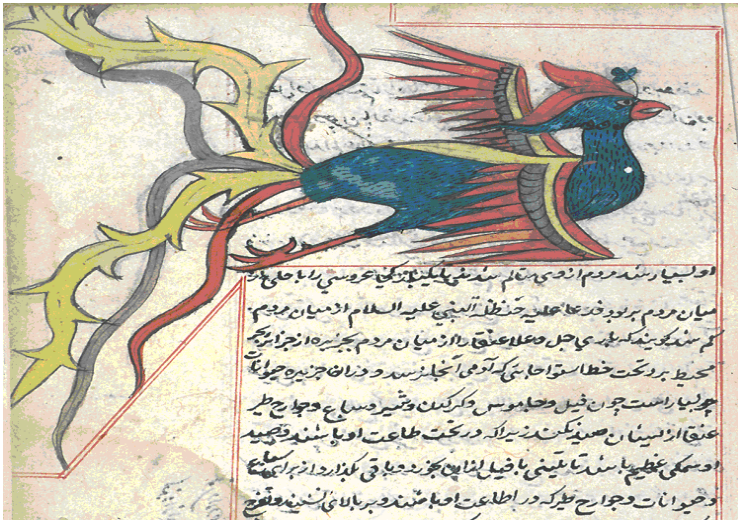 او بسیار شد مردم از وی متالم شدندی عروسی را با حلی از
میان مردم بربود فدعا علیه حنظلة النبی علیه السلام از میان مردم
کم شد کویند که باری جل وعلا عنقا را از میان مردم بجزیره از جزایر بحر
محیط برد تحت خط استوا که آدمی آنجا نرسد و در ان جزیره حیوانات
بسیار است چون فیل و جاموس و کرکدن و شیر و سباع و جوارح طیر
عنقا از ایشان صید نکند زیرا که در تحت طاعت او باشند و صید
او سمکی عظیم باشد یا تنینی یا فیل از ان بخورد و باقی بکذارد از برای سباع
و حیوانات و جوارح طیر که در اطاعت او باشند و بر بالای نشیند و تفرج